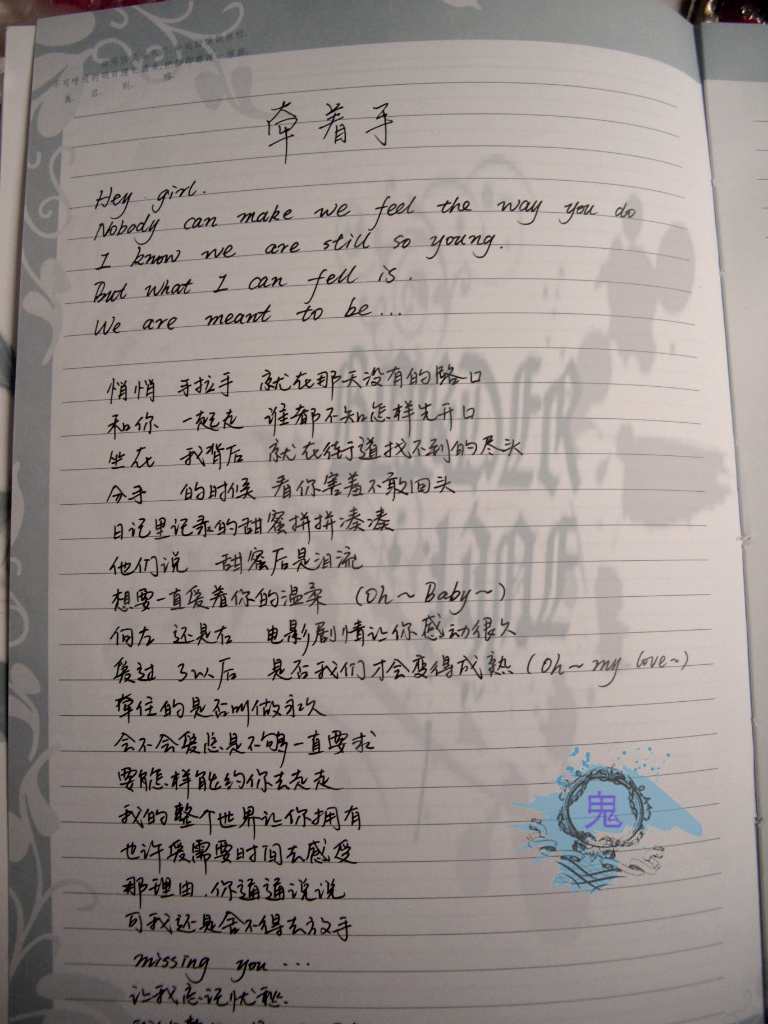 牵着手
Hey girl.
Nobody can make we feel the way you do
I know we are still so young.
But what I can fell is.
We are meant to be...
悄悄 手拉手 就在那天没有的路口
和你 一起走 谁都不知怎样先开口
坐在 我背后 就在街道找不到的尽头
分手 的时候 看你害羞不敢回头
日记里记录的甜蜜拼拼凑凑
他们说 甜蜜后是泪流
想要一直爱着你的温柔 (Oh~Baby~)
向左 还是右 电影剧情让你感动很久
爱过 了以后 是否我们才会变得成熟 (Oh~my love~)
牵住的是否叫做永久
会不会爱总是不够一直要求
要怎样能约你去走走
我的整个世界让你拥有
也许爱需要时间去感受
那理由.你通通说说
可我还是舍不得去放手
missing you ...
让我忘记忧愁.
鬼